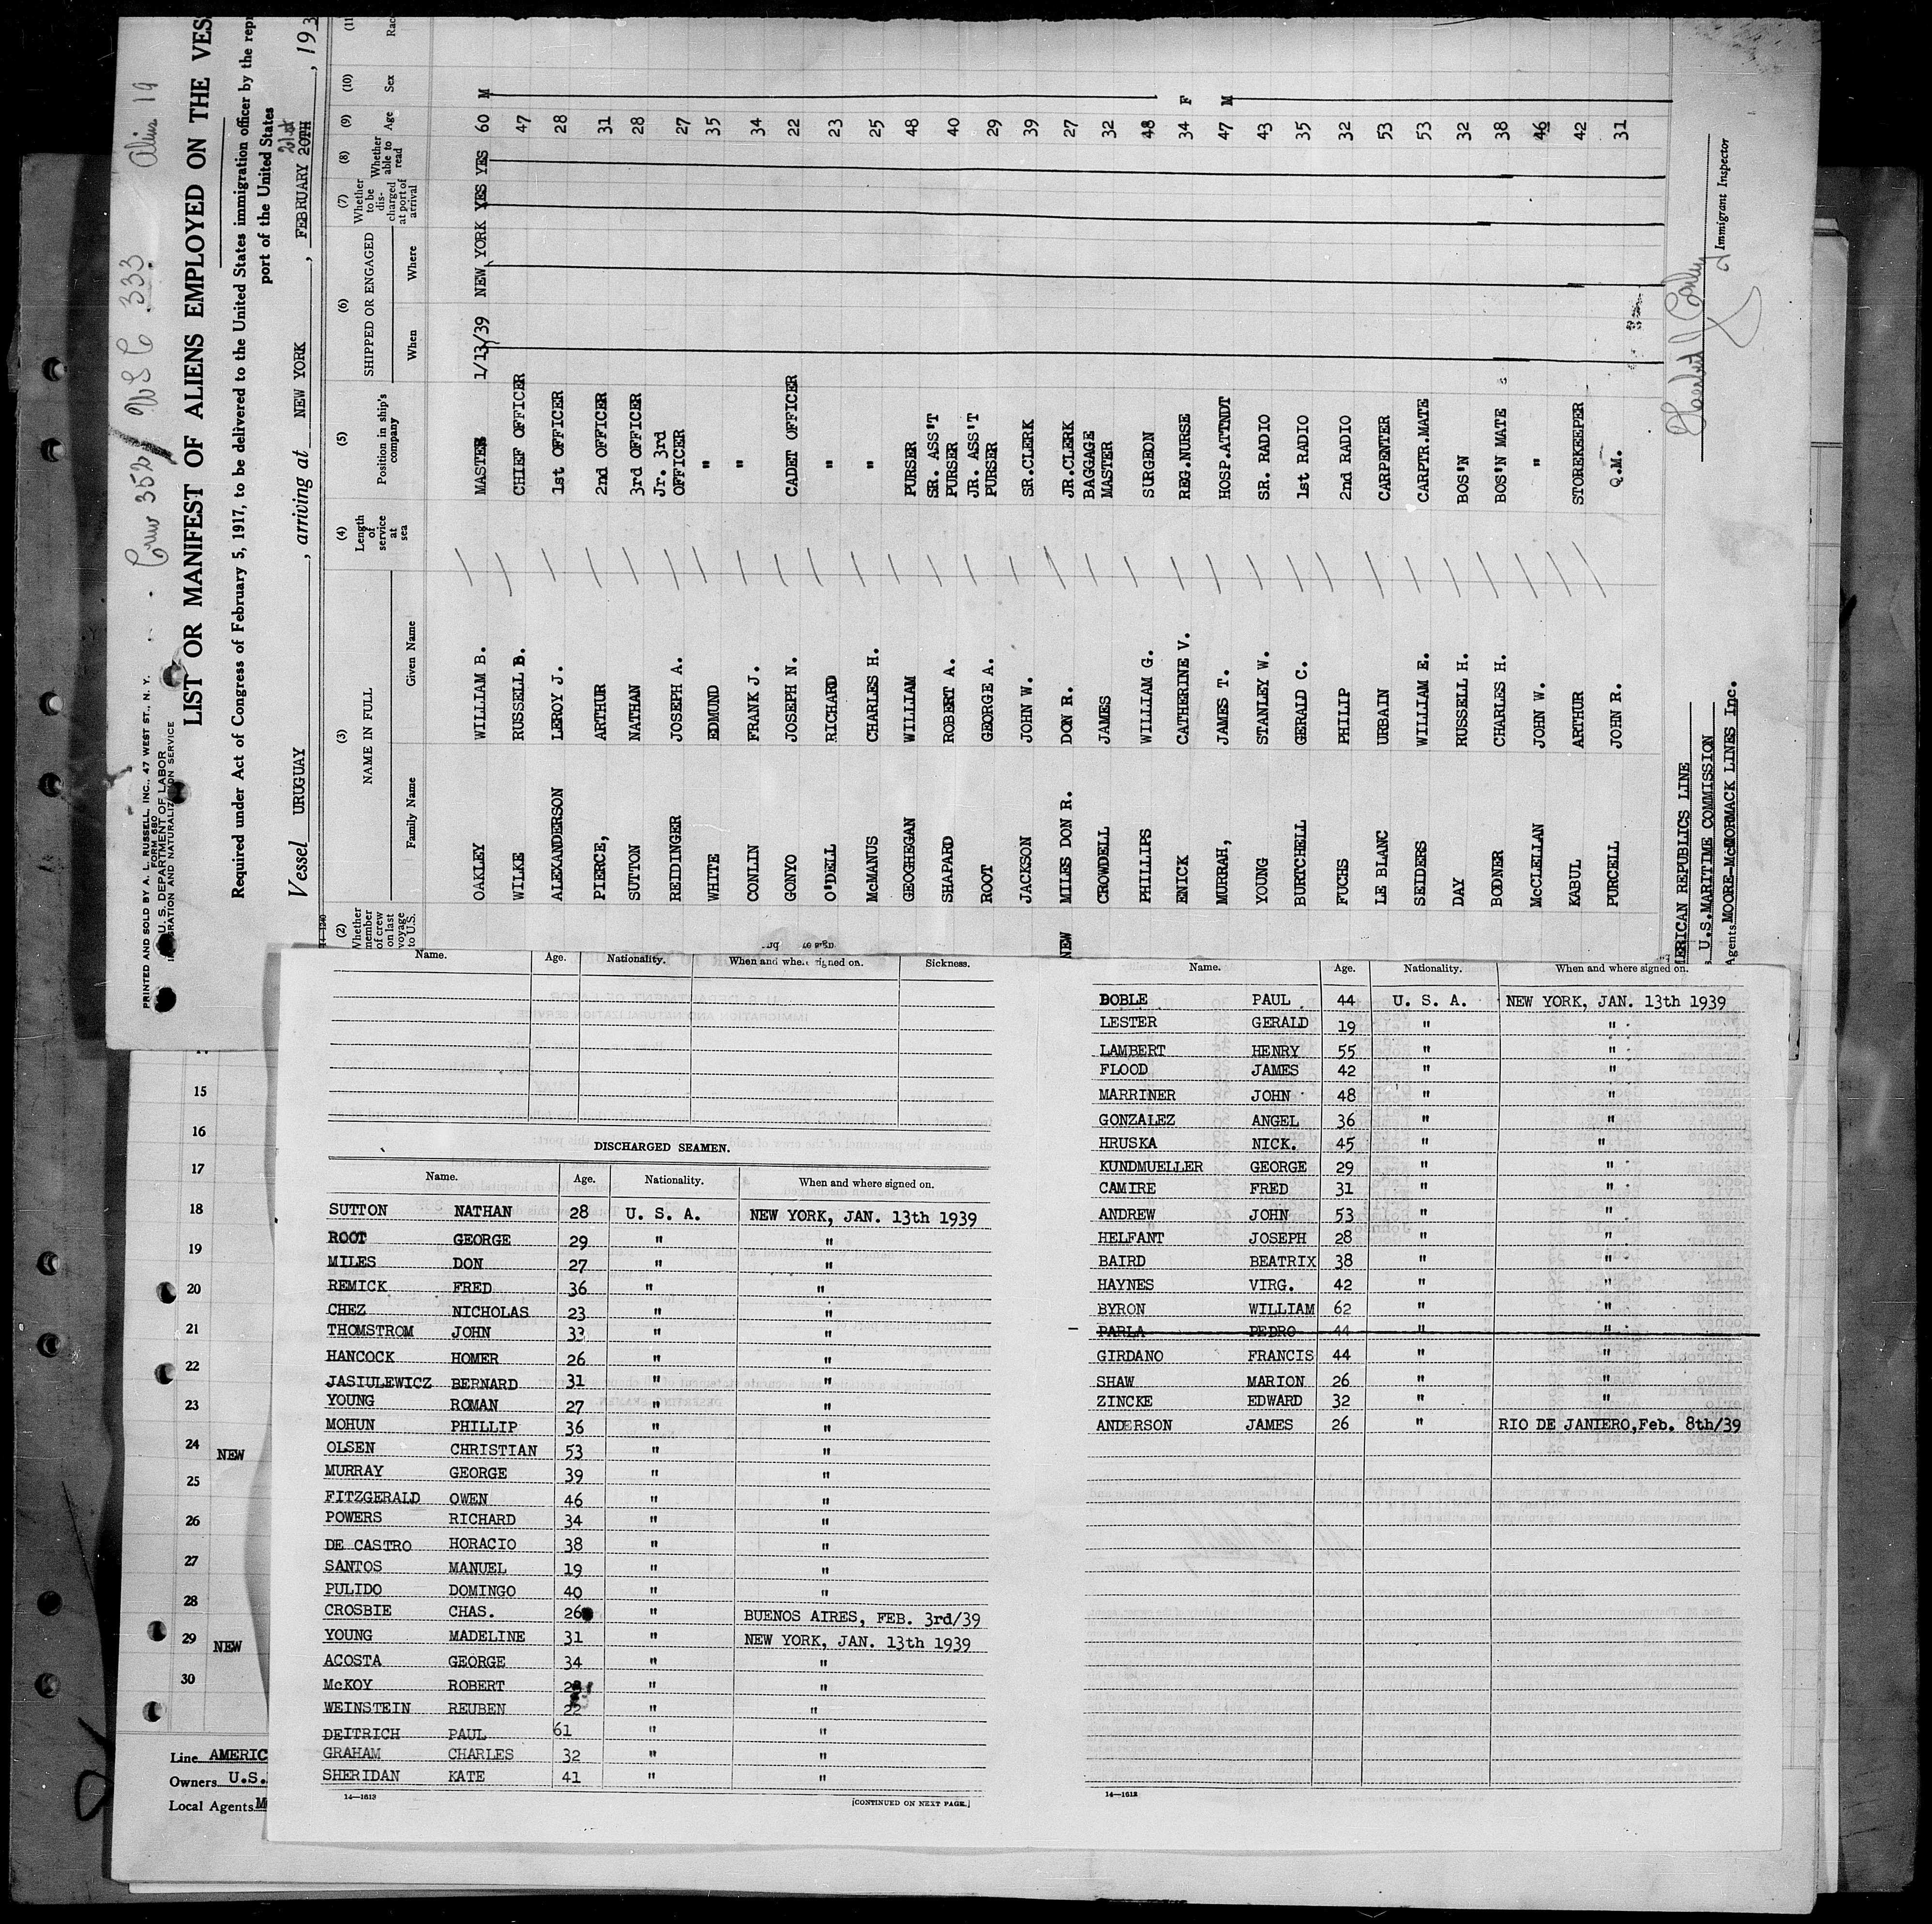 PRINTED AND SOLD BY A. L. RUSSELL, INC., 47 WEST ST., N. Y.
FORM 680
U. S. DEPARTMENT OF LABOR
IMMIGRATION AND NATURALIZATION SERVICE
Crew 352 / USC 333 Alien 19
LIST OR MANIFEST OF ALIENS EMPLOYED ON THE VES
Required under Act of Congress of February 5, 1917, to be delivered to the United States immigration officer by the repr
port of the United States
Vessel URUGUAY , arriving at NEW YORK , FEBRUARY 20TH 21st , 193
14-1240
(2) (3) (4) (5) (6) (7) (8) (9) (10) (11
Whether member of crew on last voyage to U.S. NAME IN FULL Length of service at sea Position in ship's company SHIPPED OR ENGAGED Whether to be discharged at port of arrival Whether able to read Age Sex Rac
Family Name Given Name When Where
OAKLEY WILLIAM B. MASTER 1/13/39 NEW YORK YES YES 60 M
WILKE RUSSELL B. CHIEF OFFICER 47
ALEXANDERSON LEROY J. 1st OFFICER 28
PIERCE, ARTHUR 2nd OFFICER 31
SUTTON NATHAN 3rd OFFICER 28
REIDINGER JOSEPH A. Jr. 3rd OFFICER 27
WHITE EDMUND " 35
CONLIN FRANK J. " 34
GONYO JOSEPH N. CADET OFFICER 22
O'DELL RICHARD " 23
McMANUS CHARLES H. " 25
GEOGHEGAN WILLIAM PURSER 48
SHAPARD ROBERT A. SR. ASS'T PURSER 40
ROOT GEORGE A. JR. ASS'T PURSER 29
JACKSON JOHN W. SR.CLERK 39
NEW MILES DON R. DON R. JR.CLERK 27
CROWDELL JAMES BAGGAGE MASTER 32
PHILLIPS WILLIAM G. SURGEON 48
ENICK CATHERINE V. REG.NURSE 34 F
MURRAH, JAMES T. HOSP.ATTNDT 47 M
YOUNG STANLEY W. SR. RADIO 43
BURTCHELL GERALD C. 1st RADIO 35
FUCHS PHILIP 2nd RADIO 32
LE BLANC URBAIN CARPENTER 53
SEIDERS WILLIAM E. CARPTR.MATE 53
DAY RUSSELL H. BOS'N 32
BODNER CHARLES H. BOS'N MATE 38
McCLELLAN JOHN W. " 46
KABUL ARTHUR STOREKEEPER 42
PURCELL JOHN R. Q.M. 31
ERICAN REPUBLICS LINE
U.S.MARITIME COMMISSION
Agents MOORE-McCORMACK LINES Inc.
Immigrant Inspector
15
16
17
18
19
20
21
22
23
24 NEW
25
26
27
28
29 NEW
30
Line AMERIC
Owners U.S.
Local Agents M
Name. Age. Nationality. When and where signed on. Sickness.
DISCHARGED SEAMEN.
Name. Age. Nationality. When and where signed on.
SUTTON NATHAN 28 U. S. A. NEW YORK, JAN. 13th 1939
ROOT GEORGE 29 " "
MILES DON 27 " "
REMICK FRED 36 " "
CHEZ NICHOLAS 23 " "
THOMSTROM JOHN 33 " "
HANCOCK HOMER 26 " "
JASIULEWICZ BERNARD 31 " "
YOUNG ROMAN 27 " "
MOHUN PHILLIP 36 " "
OLSEN CHRISTIAN 53 " "
MURRAY GEORGE 39 " "
FITZGERALD OWEN 46 " "
POWERS RICHARD 34 " "
DE CASTRO HORACIO 38 " "
SANTOS MANUEL 19 " "
PULIDO DOMINGO 40 " "
CROSBIE CHAS. 26 " BUENOS AIRES, FEB. 3rd/39
YOUNG MADELINE 31 " NEW YORK, JAN. 13th 1939
ACOSTA GEORGE 34 " "
McKOY ROBERT " "
WEINSTEIN REUBEN 22 " "
DEITRICH PAUL 61 " "
GRAHAM CHARLES 32 " "
SHERIDAN KATE 41 " "
14—1613 [CONTINUED ON NEXT PAGE.]
Name. Age. Nationality. When and where signed on.
DOBLE PAUL 44 U. S. A. NEW YORK, JAN. 13th 1939
LESTER GERALD 19 " "
LAMBERT HENRY 55 " "
FLOOD JAMES 42 " "
MARRINER JOHN 48 " "
GONZALEZ ANGEL 36 " "
HRUSKA NICK. 45 " "
KUNDMUELLER GEORGE 29 " "
CAMIRE FRED 31 " "
ANDREW JOHN 53 " "
HELFANT JOSEPH 28 " "
BAIRD BEATRIX 38 " "
HAYNES VIRG. 42 " "
BYRON WILLIAM 62 " "
PARLA PEDRO 44 " "
GIRDANO FRANCIS 44 " "
SHAW MARION 26 " "
ZINCKE EDWARD 32 " "
ANDERSON JAMES 26 " RIO DE JANIERO,Feb. 8th/39
14—1613